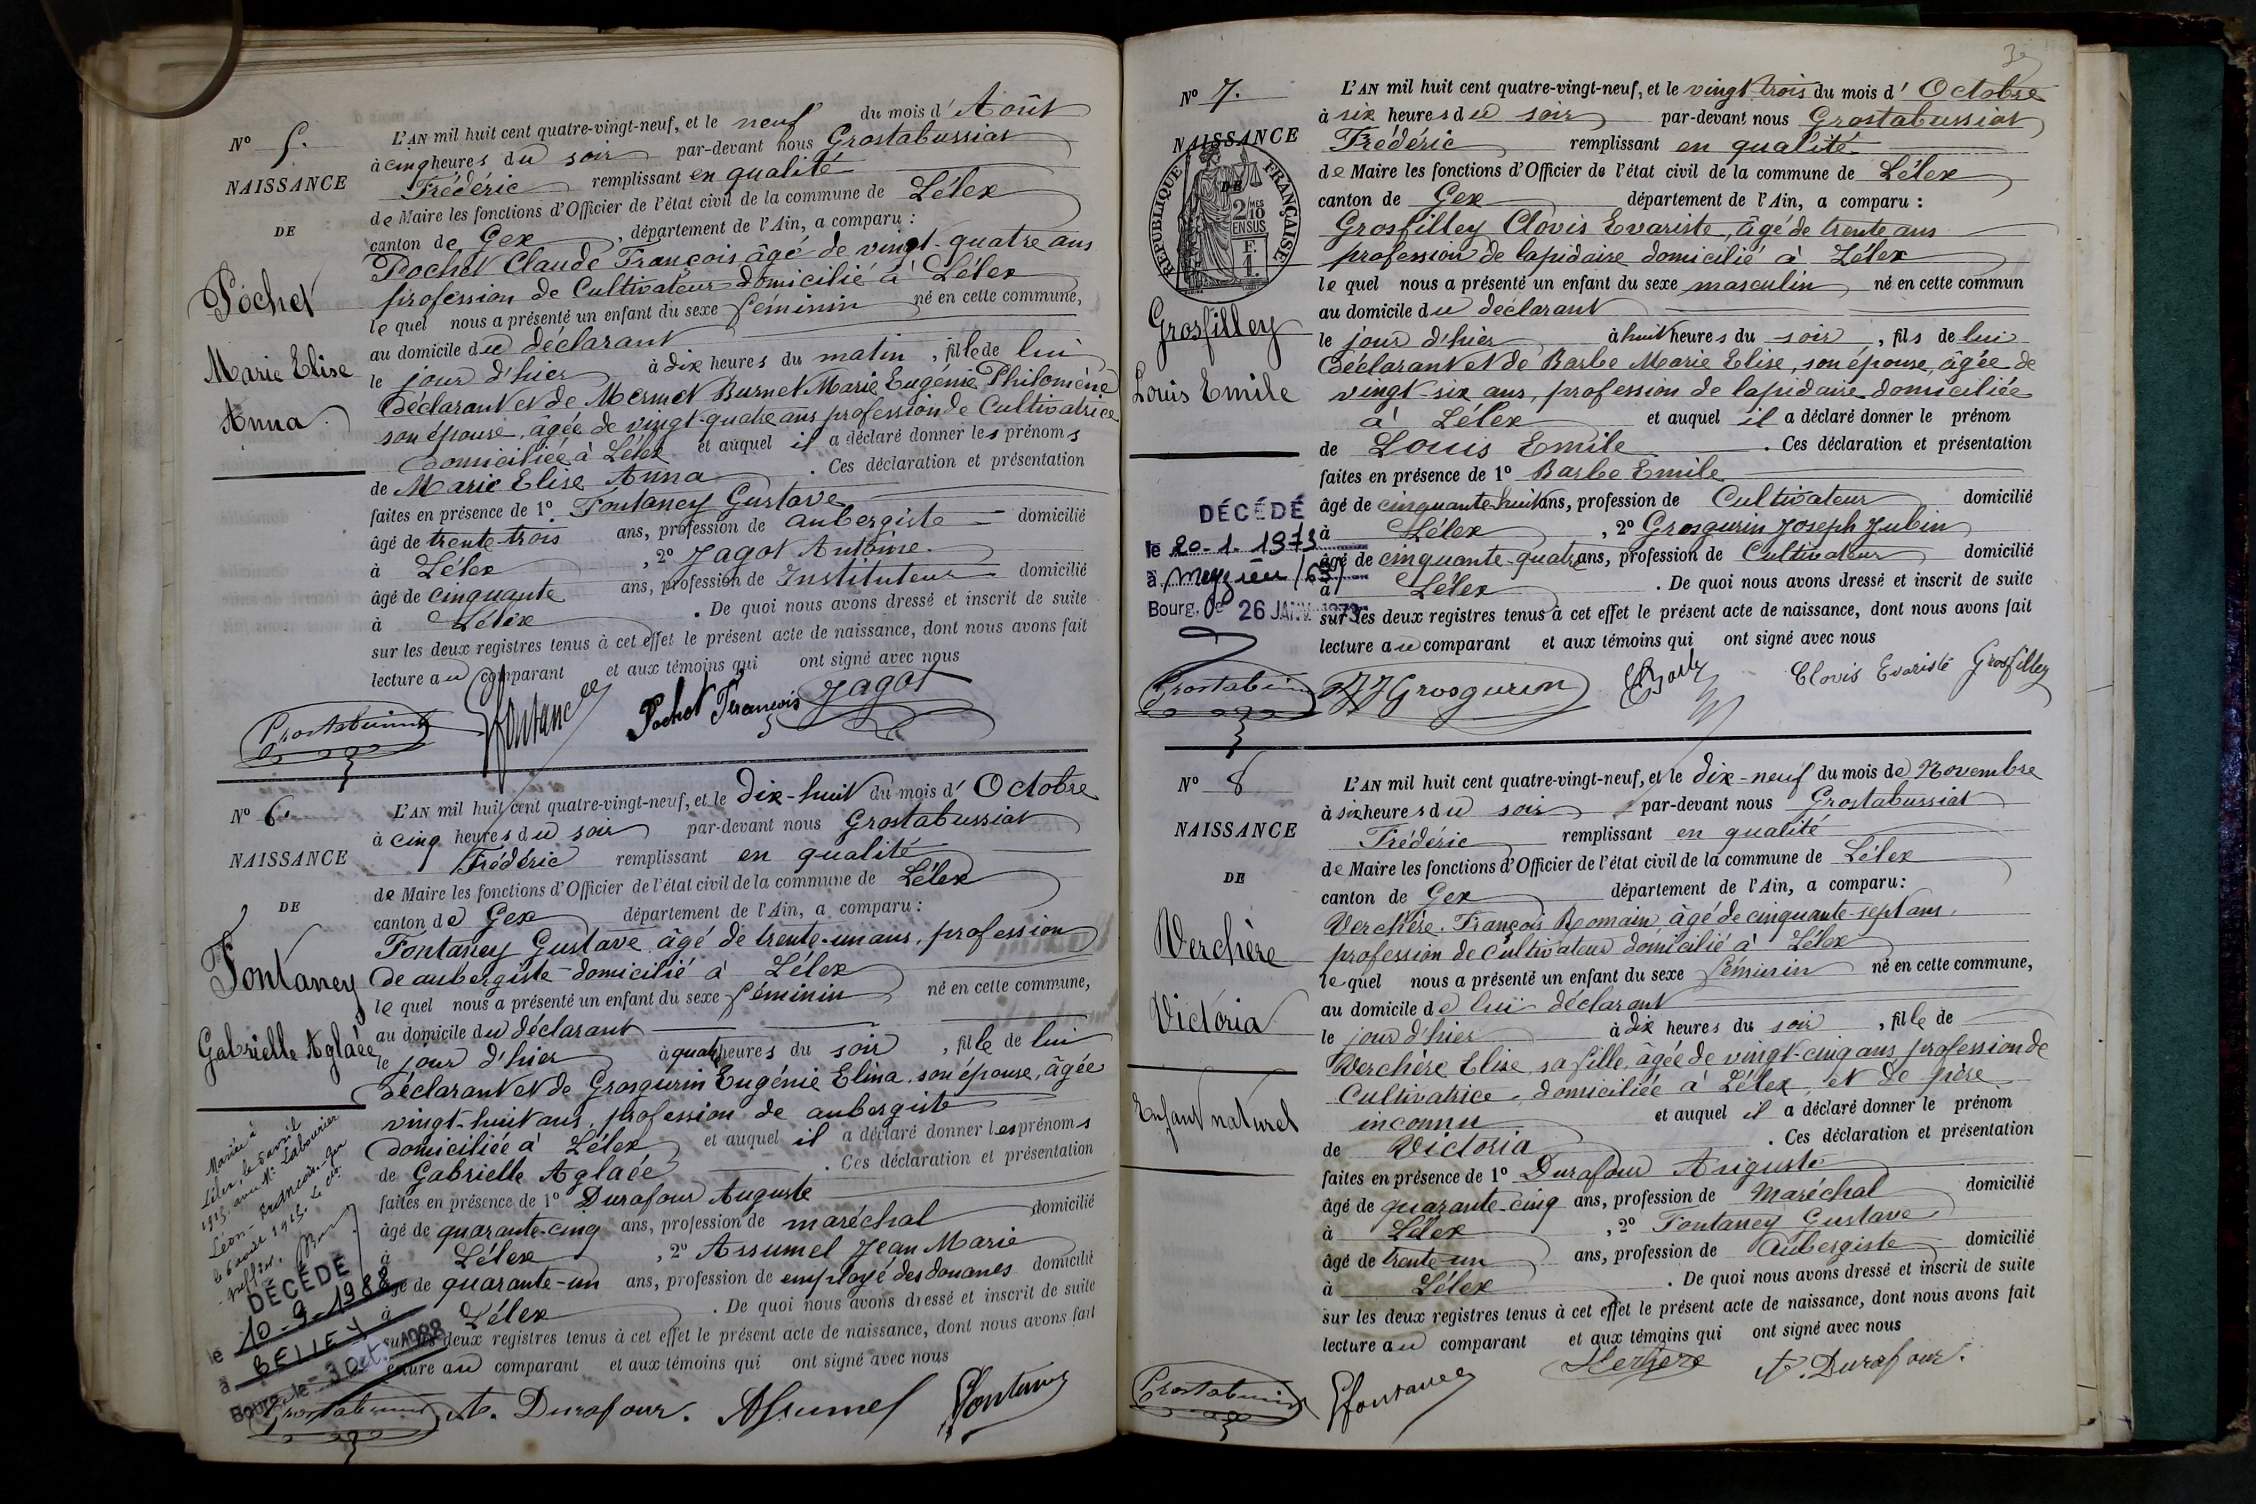 Nº 5.
NAISSANCE
DE
Pochet
Marie Elise
Anna
L'AN mil huit cent quatre-vingt-neuf, et le neuf du mois d'Août
à cinq heures du soir par-devant nous Grostabussiat
Frédéric remplissant en qualité
de Maire les fonctions d'Officier de l'état civil de la commune de Lélex
canton de Gex, département de l'Ain, a comparu :
Pochet Claude François âgé de vingt-quatre ans
profession de Cultivateur domicilié à Lélex
lequel nous a présenté un enfant du sexe féminin né en cette commune,
au domicile du déclarant
le jour d'hier à dix heures du matin, fille de lui
déclarant et de Mermet Burnet Marie Eugénie Philomène
son épouse, agée de vingt-quatre ans profession de Cultivatrice
domiciliée à Lélex et auquel il a déclaré donner les prénoms
de Marie Elise Anna. Ces déclaration et présentation
faites en présence de 1º Fontaney Gustave
âgé de trente-trois ans, profession de aubergiste domicilié
à Lélex, 2º Jagot Antoine
âgé de cinquante ans, profession de Instituteur domicilié
à Lélex. De quoi nous avons dressé et inscrit de suite
sur les deux registres tenus à cet effet le présent acte de naissance, dont nous avons fait
lecture au comparant et aux témoins qui ont signé avec nous
Grostabussiat Gfontaney Pochet François Jagot
Nº 6.
NAISSANCE
DE
Fontaney
Gabrielle Aglaée
Mariée à
Lélex, le 5 avril
1913 avec Mr Labourier
Léon-François
le 6 avril 1913. Le
DÉCÉDÉ
le 10-9-1988
à BELLEY
Bourg, le - 3 oct. 1988
L'AN mil huit cent quatre-vingt-neuf, et le dix-huit du mois d'Octobre
à cinq heures du soir par-devant nous Grostabussiat
Frédéric remplissant en qualité
de Maire les fonctions d'Officier de l'état civil de la commune de Lélex
canton de Gex département de l'Ain, a comparu :
Fontaney Gustave âgé de trente-un ans, profession
de aubergiste domicilié à Lélex
lequel nous a présenté un enfant du sexe féminin né en cette commune,
au domicile du déclarant
le jour d'hier à quatre heures du soir, fille de lui
déclarant et de Grosgurin Eugénie Elina, son épouse, âgée
vingt-huit ans, profession de aubergiste
domiciliée à Lélex et auquel il a déclaré donner les prénoms
de Gabrielle Aglaée. Ces déclaration et présentation
faites en présence de 1º Durafour Auguste
âgé de quarante-cinq ans, profession de maréchal domicilié
à Lélex, 2º Assumel Jean Marie
âgé de quarante-un ans, profession de employé des douanes domicilié
à Lélex. De quoi nous avons dressé et inscrit de suite
sur les deux registres tenus à cet effet le présent acte de naissance, dont nous avons fait
lecture au comparant et aux témoins qui ont signé avec nous
Grostabussiat A. Durafour. Assumel Gfontaney
Nº 7.
NAISSANCE
DE
RÉPUBLIQUE FRANÇAISE
2/10 MES
EN SUS
F.
1.
Grosfilley
Louis Emile
DÉCÉDÉ
le 20-1-1973
à Meyzieu (69)
Bourg, le 26 JANV. 1973
L'AN mil huit cent quatre-vingt-neuf, et le vingt trois du mois d'Octobre
à six heures du soir par-devant nous Grostabussiat
Frédéric remplissant en qualité
de Maire les fonctions d'Officier de l'état civil de la commune de Lélex
canton de Gex département de l'Ain, a comparu :
Grosfilley Clovis Evariste, âgé de trente ans
profession de lapidaire domicilié à Lélex
lequel nous a présenté un enfant du sexe masculin né en cette commun
au domicile du déclarant
le jour d'hier à huit heures du soir, fils de lui
déclarant et de Barbe Marie Elise, son épouse, âgée de
vingt-six ans, profession de lapidaire domiciliée
à Lélex et auquel il a déclaré donner le prénom
de Louis Emile. Ces déclaration et présentation
faites en présence de 1º Barbe Emile
âgé de cinquante-huit ans, profession de Cultivateur domicilié
à Lélex, 2º Grosgurin Joseph Jubin
âgé de cinquante-quatre ans, profession de Cultivateur domicilié
à Lélex. De quoi nous avons dressé et inscrit de suite
sur les deux registres tenus à cet effet le présent acte de naissance, dont nous avons fait
lecture au comparant et aux témoins qui ont signé avec nous
Grostabussiat JJ Grosgurin EBarbe Clovis Evariste Grosfilley
Nº 8
NAISSANCE
DE
Verchère
Victoria
Enfant naturel
L'AN mil huit cent quatre-vingt-neuf, et le dix-neuf du mois de Novembre
à six heures du soir par-devant nous Grostabussiat
Frédéric remplissant en qualité
de Maire les fonctions d'Officier de l'état civil de la commune de Lélex
canton de Gex département de l'Ain, a comparu :
Verchère François Romain âgé de cinquante-sept ans,
profession de cultivateur domicilié à Lélex
lequel nous a présenté un enfant du sexe féminin né en cette commune,
au domicile de lui déclarant
le jour d'hier à dix heures du soir, fille de
Verchère Elise, sa fille, âgée de vingt-cinq ans, profession de
Cultivatrice, domiciliée à Lélex et de père
inconnu et auquel il a déclaré donner le prénom
de Victoria. Ces déclaration et présentation
faites en présence de 1º Durafour Auguste
âgé de quarante-cinq ans, profession de Maréchal domicilié
à Lélex, 2º Fontaney Gustave
âgé de trente-un ans, profession de Aubergiste domicilié
à Lélex. De quoi nous avons dressé et inscrit de suite
sur les deux registres tenus à cet effet le présent acte de naissance, dont nous avons fait
lecture au comparant et aux témoins qui ont signé avec nous
Grostabussiat Gfontaney Verchere A. Durafour.